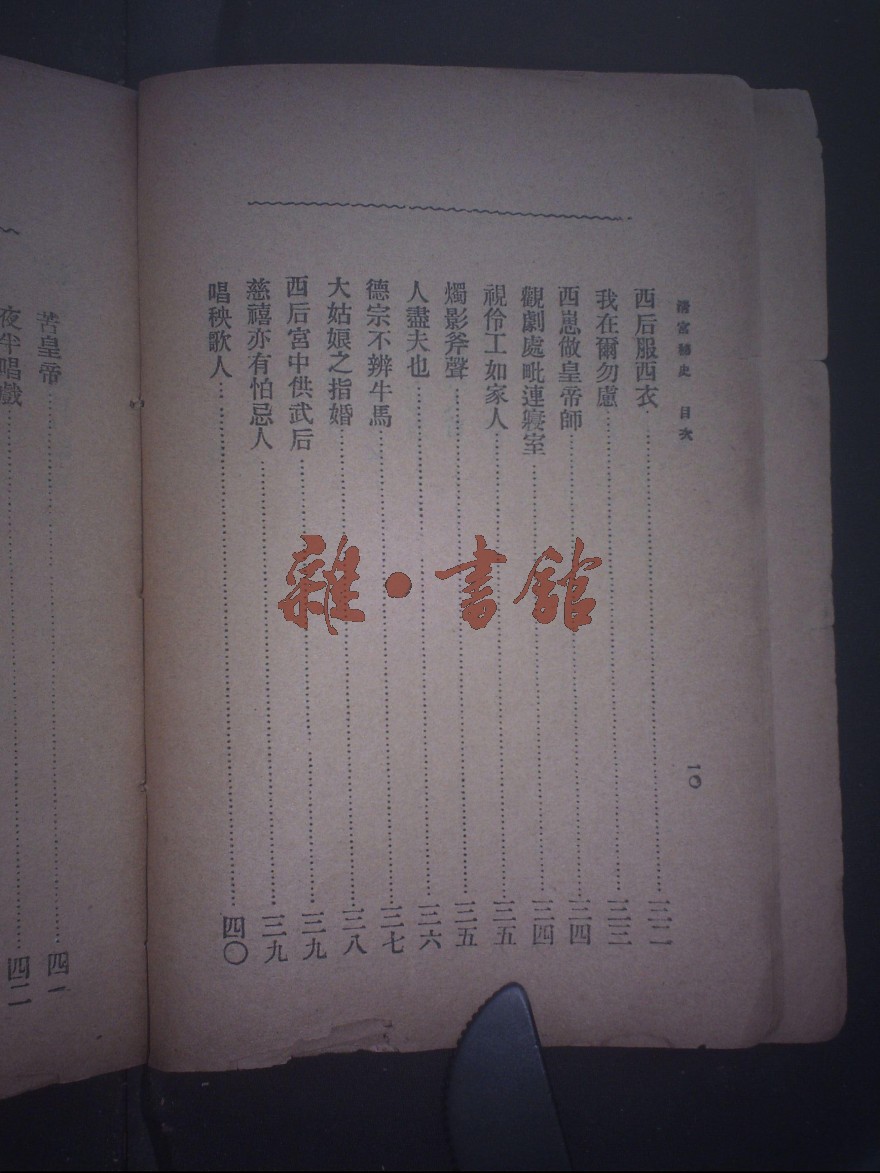 清宮祕史 目次
一〇
西后服西衣……三二
我在爾勿慮……三三
西崽做皇帝師……三四
觀劇處毗連寢室……三四
視伶工如家人……三五
燭影斧聲……三五
人盡夫也……三六
德宗不辨牛馬……三七
大姑娘之指婚……三八
西后宮中供武后……三九
慈禧亦有怕忌人……三九
唱秧歌人……四〇
苦皇帝……四一
夜半唱戲……四二
雜·書館